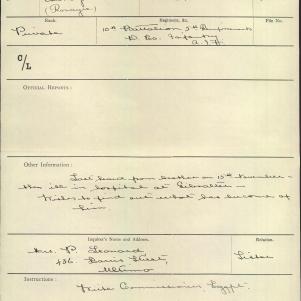 (Rongie)
Rank.
Regiment, &c.
File No.
Private
10th Battalion 5th Reinforcements
D. Co. Infantry
A.I.F.
C/L
OFFICIAL REPORTS:
Other Information:
Last heard from brother on 15th November
then ill in hospital at Gibraltar
Wishes to find out what has become of
him
Inquirer's Name and Address.
Relation.
Mrs. P. Leonard
Street,
Sister
Instructions:
Write Commissioner Egypt.